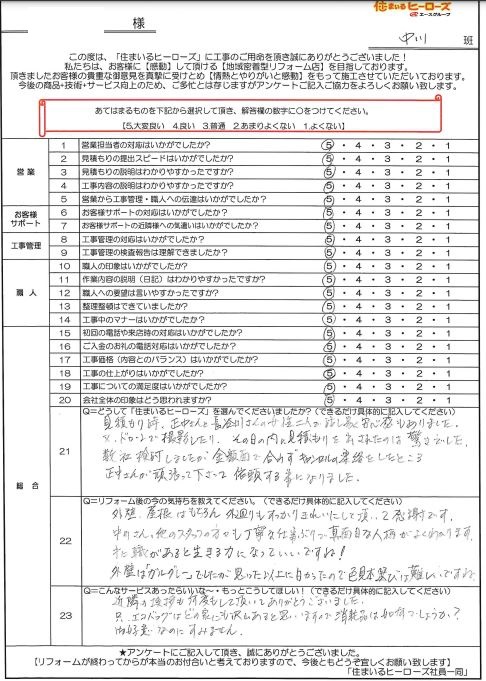 住まいるヒーローズ
エースグループ
様
中川 班
この度は、「住まいるヒーローズ」に工事のご用命を頂き誠にありがとうございました！
私たちは、お客様に【感動】して頂ける【地域密着型リフォーム店】を目指しております。
頂きましたお客様の貴重な御意見を真摯に受けとめ【情熱とやりがいと感動】をもって施工させていただいております。
今後の商品+技術+サービス向上のため、ご多忙とは存じますがアンケートにご記入ご協力をよろしくお願い致します。
あてはまるものを下記から選択して頂き、解答欄の数字に○をつけてください。
【5.大変良い 4.良い 3.普通 2.あまりよくない 1.よくない】
営業
1 営業担当者の対応はいかがでしたか? 5・4・3・2・1
2 見積もりの提出スピードはいかがでしたか? 5・4・3・2・1
3 見積もりの説明はわかりやすかったですか? 5・4・3・2・1
4 工事内容の説明はいかがでしたか? 5・4・3・2・1
5 営業から工事管理・職人への伝達はいかがでしたか? 5・4・3・2・1
お客様サポート
6 お客様サポートの対応はいかがでしたか? 5・4・3・2・1
7 お客様サポートの近隣様への気遣いはいかがでしたか? 5・4・3・2・1
工事管理
8 工事管理の対応はいかがでしたか? 5・4・3・2・1
9 工事管理の検査報告は理解できましたか? 5・4・3・2・1
職人
10 職人の印象はいかがでしたか? 5・4・3・2・1
11 作業内容の説明(日記)はわかりやすかったですか? 5・4・3・2・1
12 職人への要望は言いやすかったですか? 5・4・3・2・1
13 整理整頓はできていましたか? 5・4・3・2・1
14 工事中のマナーはいかがでしたか? 5・4・3・2・1
総合
15 初回の電話や来店時の対応はいかがでしたか? 5・4・3・2・1
16 ご入金のお礼の電話対応はいかがでしたか? 5・4・3・2・1
17 工事価格(内容とのバランス)はいかがでしたか? 5・4・3・2・1
18 工事の仕上がりはいかがでしたか? 5・4・3・2・1
19 工事についての満足度はいかがでしたか? 5・4・3・2・1
20 会社全体の印象はどう思われますか? 5・4・3・2・1
21 Q=どうして「住まいるヒーローズ」を選んでくださいましたか?(できるだけ具体的に記入してください)
見積もり時、
又、ドローンで撮影したり、その日の内に見積もりを出されたのは驚きでした。
数社検討しましたが金額面で合わずキャンセルの連絡をしたところ
さんが頑張って下さって依頼する事になりました。
22 Q=リフォーム後の今の気持ちを教えてください。(できるだけ具体的に記入してください)
外壁、屋根はもちろん水廻りもすっかりきれいにして頂いて感謝です。
中川さん、他のスタッフの方々も丁寧な仕事ぶりで真面目な人柄がよくわかります。
手に職があると生きる力になっていいですね!
外壁は「ガルグレー」でしたが思った以上に白かったので色見本選びは難しいですね。
23 Q=こんなサービスあったらいいな～・もっとこうしてほしい!(できるだけ具体的に記入してください)
近隣の挨拶も何度もして頂いてありがとうございました。
只、エコバッグはどの家にも沢山あると思いますので消耗品は如何でしょうか?
御好意なのにすみません。
★アンケートにご記入して頂き、誠にありがとうございました。
【リフォームが終わってからが本当のお付合いと考えておりますので、今後ともどうぞ宜しくお願い致します】
「住まいるヒーローズ社員一同」